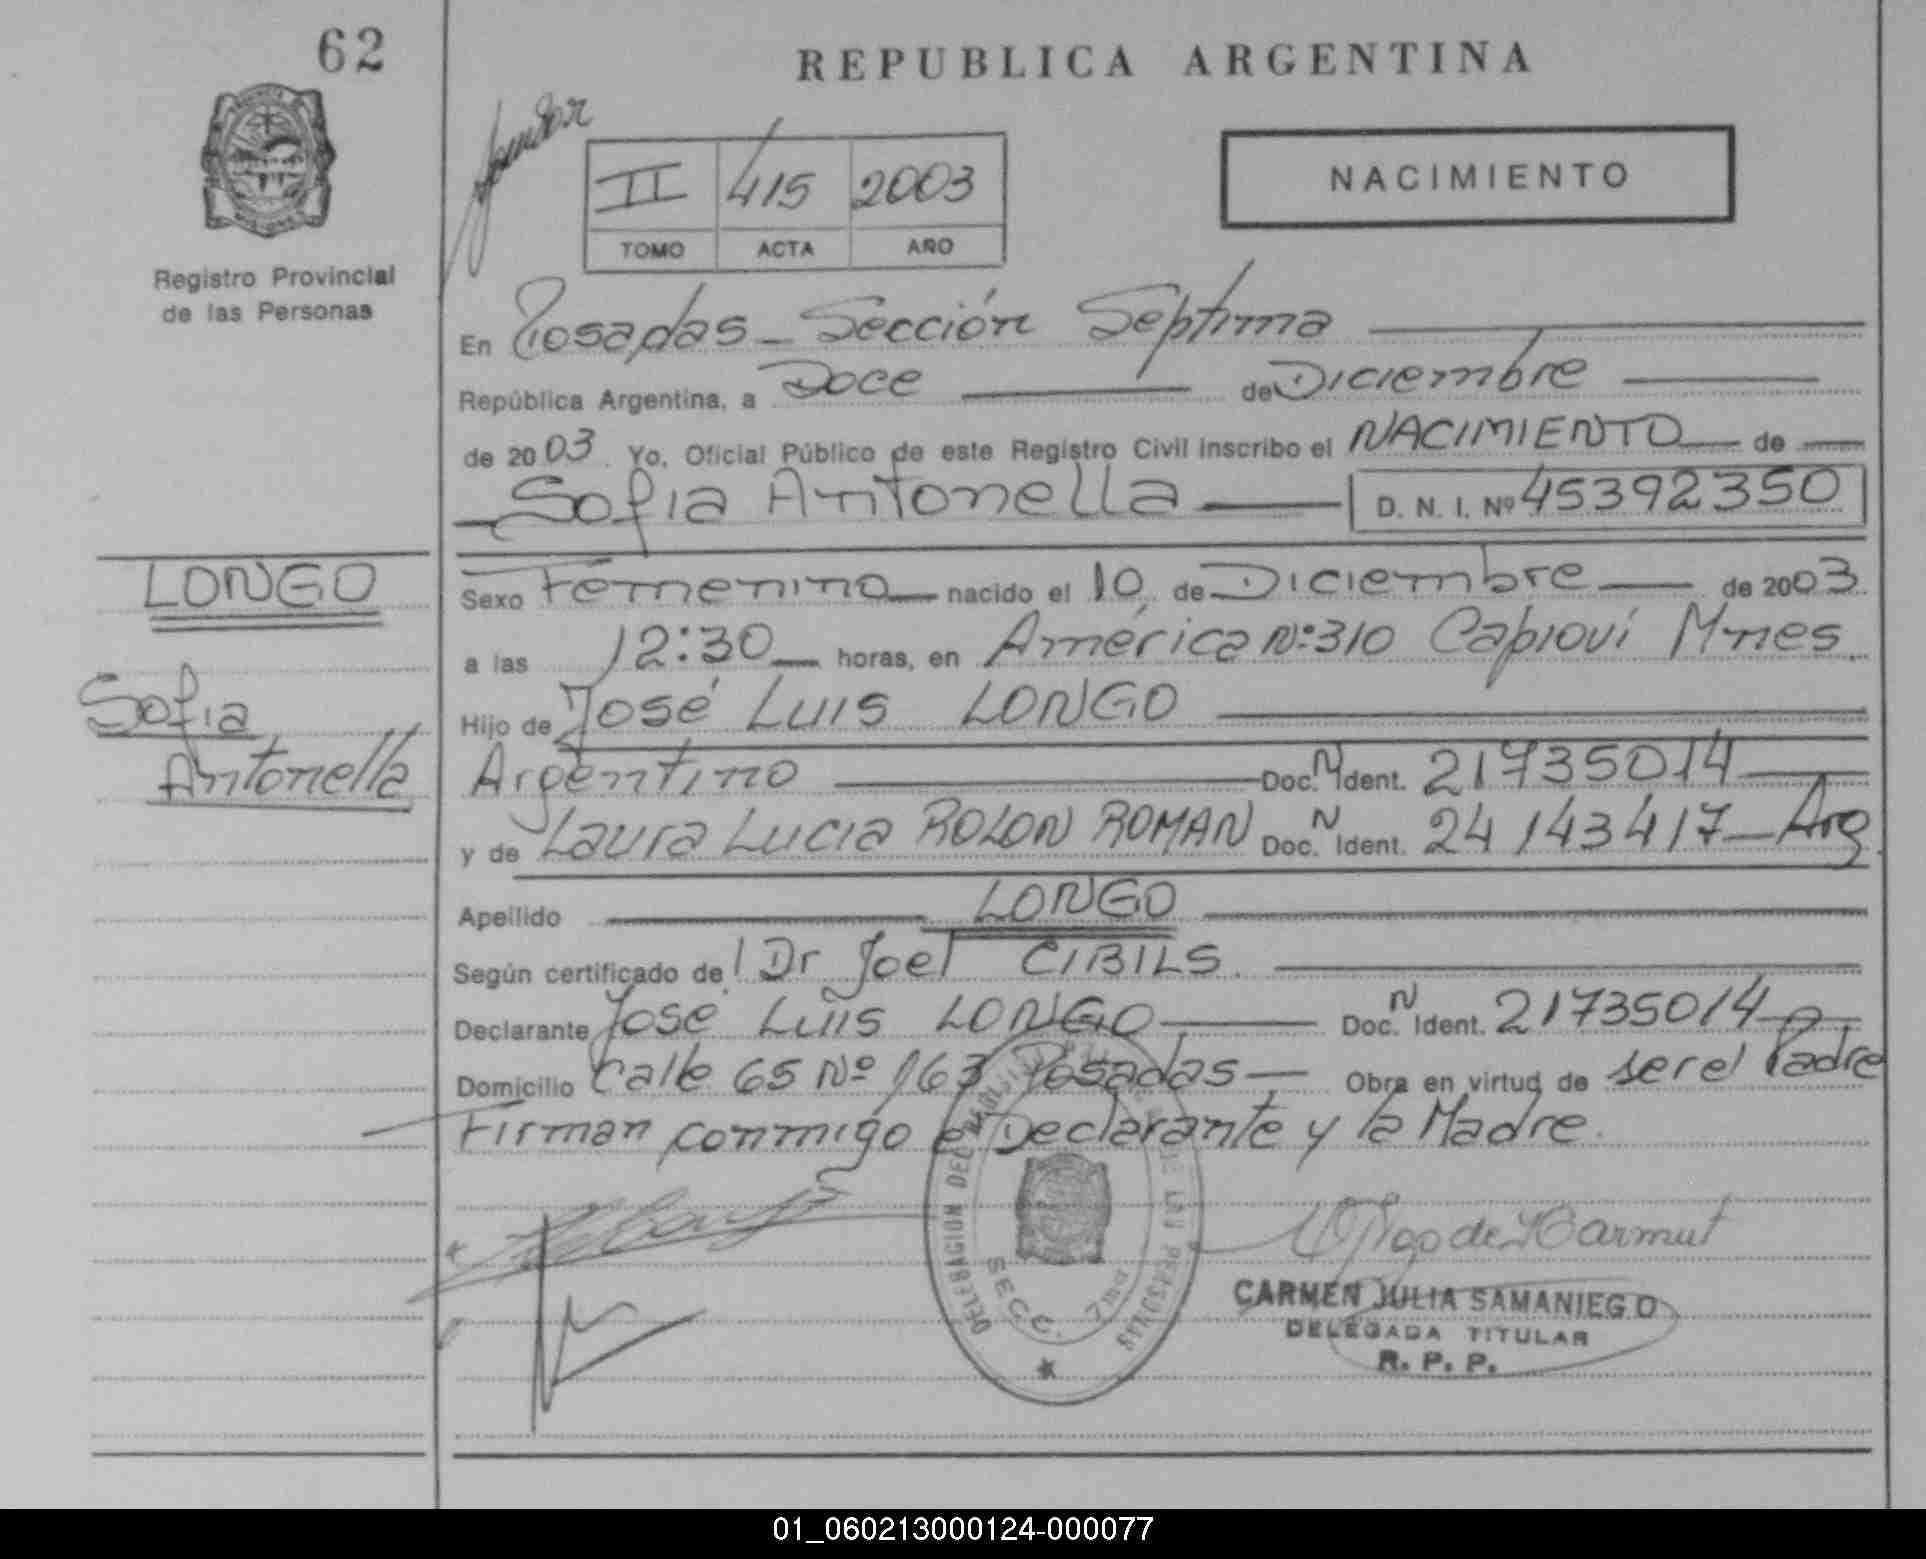 62
REPUBLICA ARGENTINA
II 415 2003
TOMO ACTA AÑO
NACIMIENTO
Registro Provincial
de las Personas
En Posadas - Sección Septima
República Argentina, a Doce de Diciembre
de 2003. Yo, Oficial Público de este Registro Civil inscribo el NACIMIENTO de
Sofia Antonella D. N. I. Nº 45392350
LONGO
Sofia
Antonella
Sexo Femenino nacido el 10 de Diciembre de 2003.
a las 12:30 horas, en América Nº 310 Capioví Mnes.
Hijo de José Luis LONGO
Argentino Doc. N Ident. 21735014
y de Laura Lucia ROLON ROMAN Doc. N Ident. 24143417 - Arg.
Apellido LONGO
Según certificado de Dr Joel CIBILS.
Declarante José Luis LONGO Doc. N Ident. 21735014
Domicilio Calle 65 Nº 163 Posadas Obra en virtud de ser el Padre
Firman conmigo el Declarante y la Madre.
DELEGACION DEL REGISTRO DE LAS PERSONAS
SECC. 7ma
CARMEN JULIA SAMANIEGO
DELEGADA TITULAR
R. P. P.
01_060213000124-000077